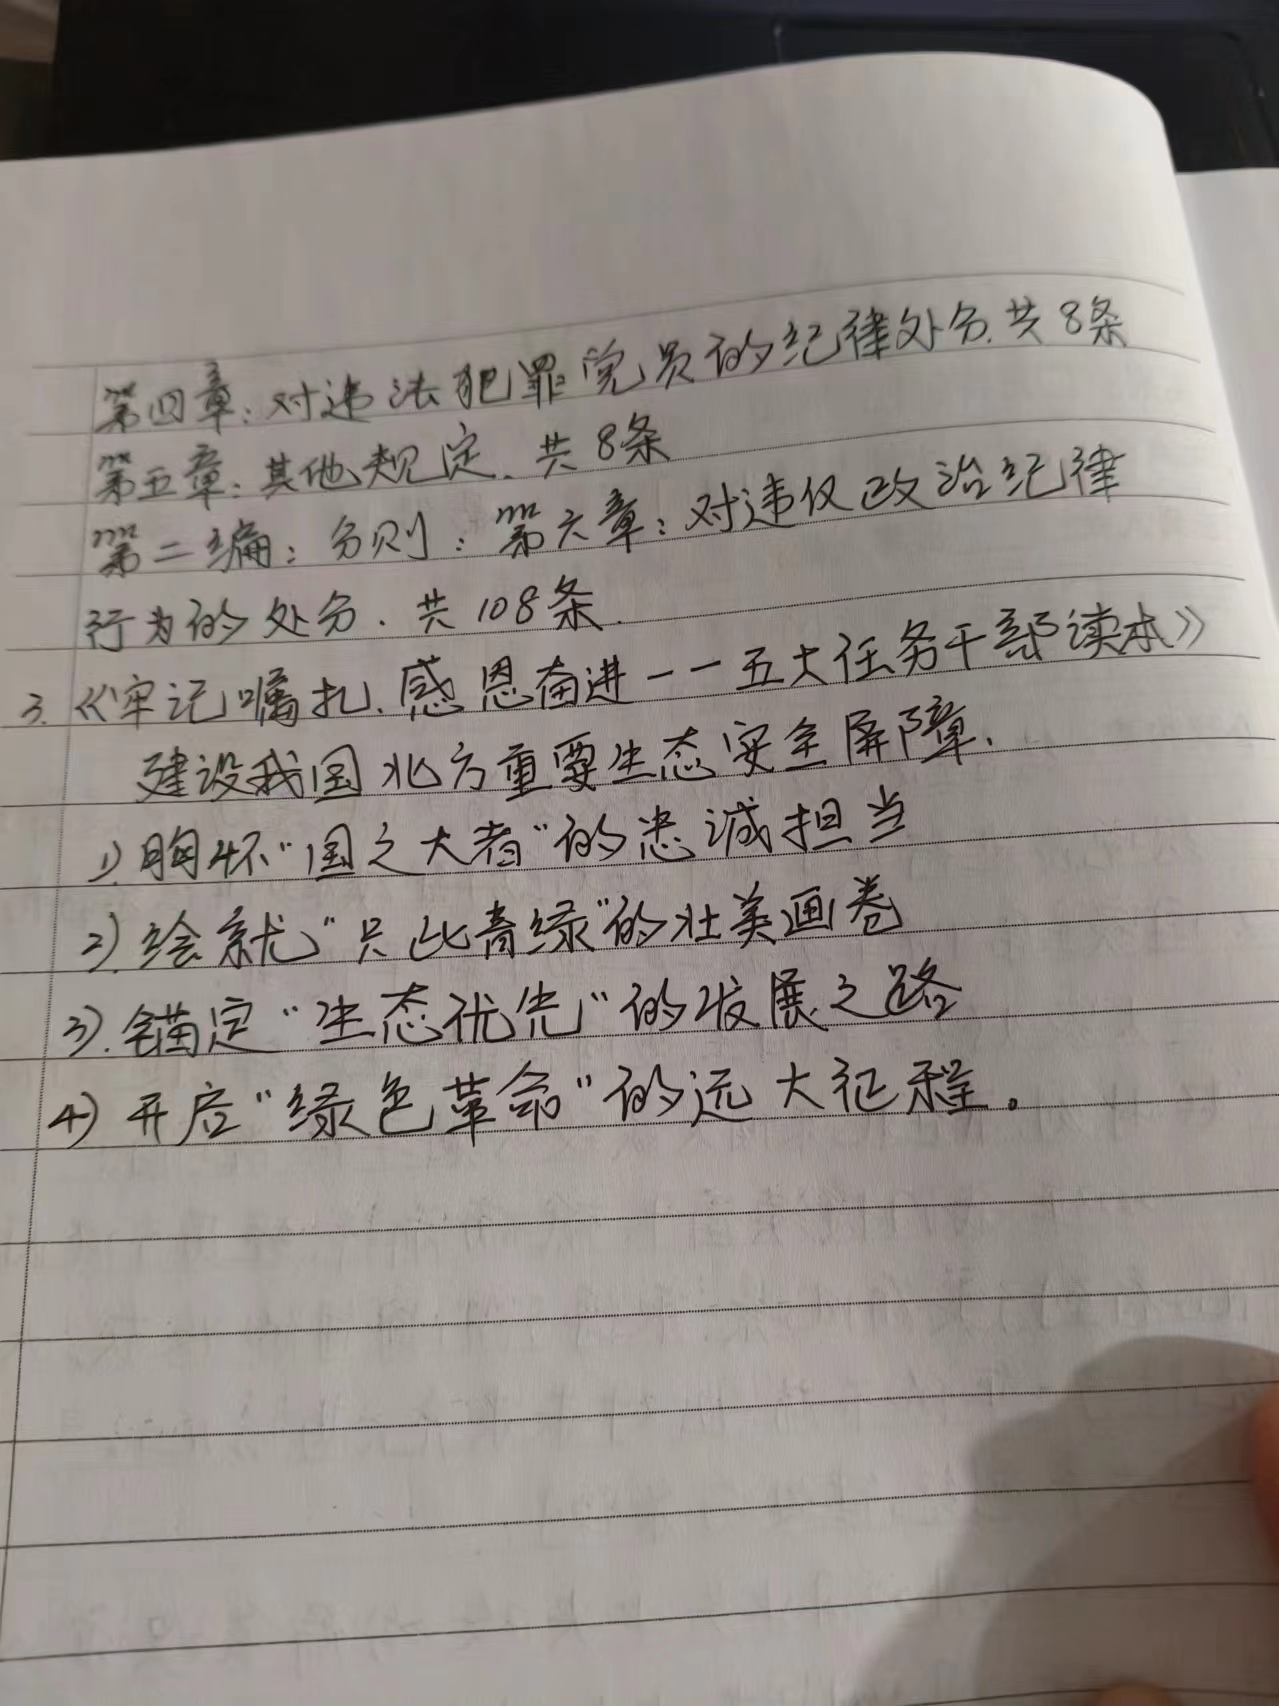 第四章:对违法犯罪党员的纪律处分.共8条
第五章:其他规定.共8条
第二编:分则:第六章:对违仅政治纪律
行为的处分.共108条.
3.《牢记嘱扎.感恩奋进一一五大任务干部读本》
建设我国北方重要生态安全屏障.
1).胸怀“国之大者”的忠诚担当
2).绘就“只此青绿”的壮美画卷
3).锚定“生态优先”的发展之路
4)开启“绿色革命”的远大征程。